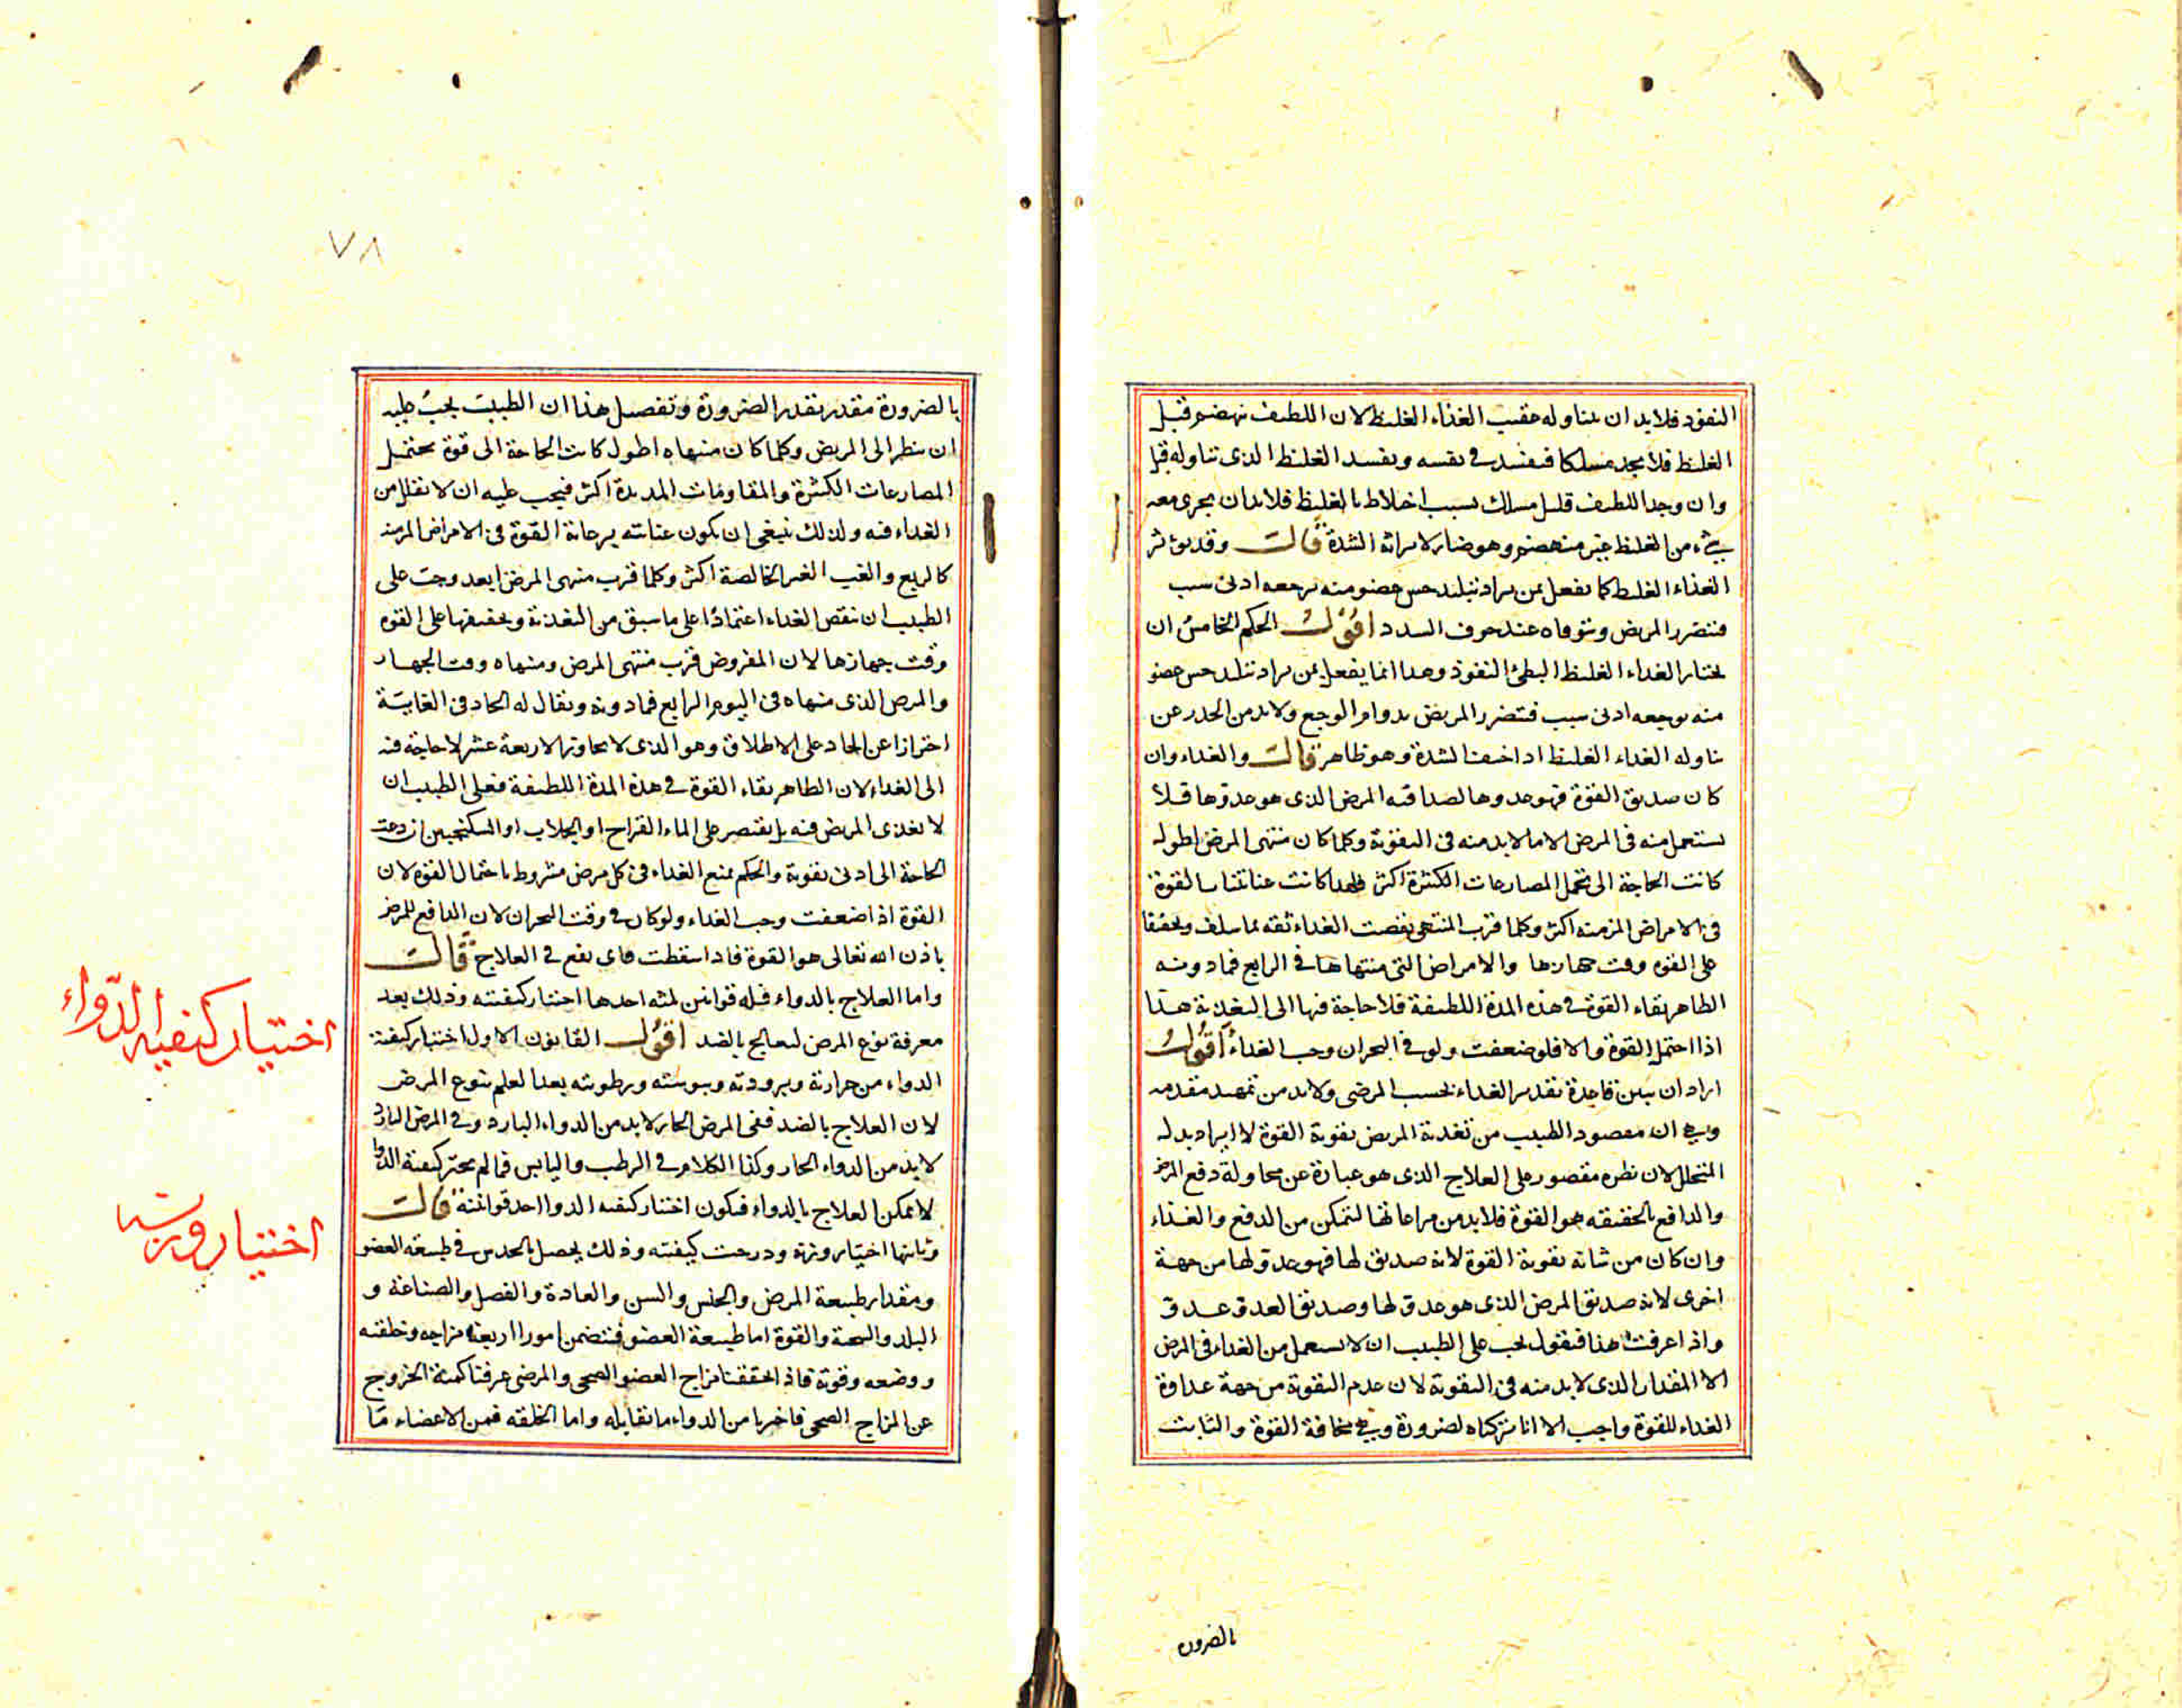 النفوذ فلا بد ان يتناوله عقيب الغذاء الغليظ لان اللطيف ينهضم قبل
الغليظ فلا يجد مسلكا فيفسد في نفسه ويفسد الغليظ الذي تناوله قبل
وان وجد اللطيف قليل مسلك بسبب اختلاط بالغليظ فلا بد ان يجري معه
شيء من الغليظ غير منهضم وهو ضار لايراثه الشدة قال وقد يؤثر
الغذاء الغليظ كما يفعل بمن يراد تبليد حس عضو منه يرجعه ادنى سبب
فيتضرر المريض ويتوقاه عند خوف السدد اقول الحكم الخامس ان
يختار الغداء الغليظ البطئ النفوذ وهذا انما يفعل بمن يراد تبليد حس عضو
منه يوجعه ادنى سبب فيتضرر المريض بدوام الوجع ولا بد من الحذر عن
تناوله الغداء الغليظ اذا خيف الشدة وهو ظاهر قال والغداء وان
كان صديق القوة فهو عدوها لصداقته المرض الذي هو عدوها فلا
يستعمل منه في المرض الا ما لا بد منه في التقوية وكلما كان منتهى المرض اطول
كانت الحاجة الى تحمل المصارعات الكثيرة اكثر فلهذا كانت عنايتنا بالقوة
في الامراض المزمنه اكثر وكلما قرب المنتهى نقصت الغداء ثقه بما سلف وتخفيفا
على القوه وقت جهادها والامراض التي منتهاها في الرابع فما دونه
الظاهر بقاء القوة في هذه المدة اللطيفة فلا حاجة فيها الى التغذية هذا
اذا احتمل القوة والا فلو ضعفت ولو في البحران وجب الغداء اقول
اراد ان يبين قاعدة تقدير الغداء بحسب المرضى ولا بد من تمهيد مقدمه
وهي ان مقصود الطبيب من تغدية المريض تقوية القوة لا ايراد بدل
المتحلل لان نظره مقصور على العلاج الذي هو عبارة عن محاولة دفع المرض
والدافع بالحقيقه هو القوة فلا بد من مراعاتها لتمكن من الدفع والغذاء
وان كان من شانه تقوية القوة لانه صديق لها فهو عدو لها من جهة
اخرى لانه صديق المرض الذي هو عدو لها وصديق العدو عدو
واذا عرفت هذا فيقول يجب على الطبيب ان لا يستعمل من الغداء في المرض
الا المقدار الذي لا بد منه في التقوية لان عدم التقوية من جهة عداوة
الغداء للقوة واجب الا انا تركناه لضرورة وهي مخافة القوة والثابت
بالضروره
٧٨
بالضرورة مقدر بقدر الضرورة وتفصيل هذا ان الطبيب يجب عليه
ان ينظر الى المريض وكلما كان منتهاه اطول كانت الحاجة الى قوة تحتمل
المصارعات الكثيرة والمقاومات المديدة اكثر فيجب عليه ان لا يقلل من
الغداء فيه ولذلك ينبغي ان يكون عنايته برعاية القوة في الامراض المزمنة
كالربع والغب الغير الخالصة اكثر وكلما قرب منتهى المرض ابعد وجب على
الطبيب ان ينقص الغداء اعتمادا على ما سبق من التغذية وتخفيفها على القوه
وقت جهازها لان المفروض قرب منتهى المرض ومنتهاه وقت الجهاد
والمرض الذي منتهاه في اليوم الرابع فما دونه ويقال له الحاد في الغاية
احترازا عن الحاد على الاطلاق وهو الذي لا يجاوز الاربعة عشر لا حاجة فيه
الى الغداء لان الظاهر بقاء القوة في هذه المدة اللطيفة فعلى الطبيب ان
لا يغذي المريض فيه بل يقتصر على الماء القراح او الجلاب او السكنجبين ان دعت
الحاجة الى ادنى تقوية والحكم بمنع الغداء في كل مرض مشروط باحتمال القوة لان
القوة اذا ضعفت وجب الغداء ولو كان في وقت البحران لان الدافع للمرض
باذن الله تعالى هو القوة فاذا سقطت فاي نفع في العلاج قال
واما العلاج بالدواء فله قوانين ثلثه احدها اختيار كيفيته وذلك بعد
معرفة نوع المرض ليعالج بالضد اقول القانون الاول اختيار كيفية
الدواء من حرارته وبرودته ويبوسته ورطوبته بعد العلم بنوع المرض
لان العلاج بالضد ففي المرض الحار لا بد من الدواء البارد وفي المرض البارد
لا بد من الدواء الحار وكذا الكلام في الرطب واليابس فما لم يختر كيفية الدواء
لا يمكن العلاج بالدواء فيكون اختيار كيفيه الدواء احد قوانينه قال
وثانيها اختيار وزنه ودرجت كيفيته وذلك يحصل بالحدس في طبيعة العضو
ومقدار طبيعة المرض والجنس والسن والعادة والفصل والصناعة و
البلد والسحنة والقوة اما طبيعة العضو فيتضمن امورا اربعة مزاجه وخلقته
ووضعه وقوته فاذا تحققنا مزاج العضو الصحي والمرضي عرفنا كمية الخروج
عن المزاج الصحي فاخترنا من الدواء ما يقابله واما الخلقه فمن الاعضاء ما
اختيار كيفية الدواء
اختيار وزنه